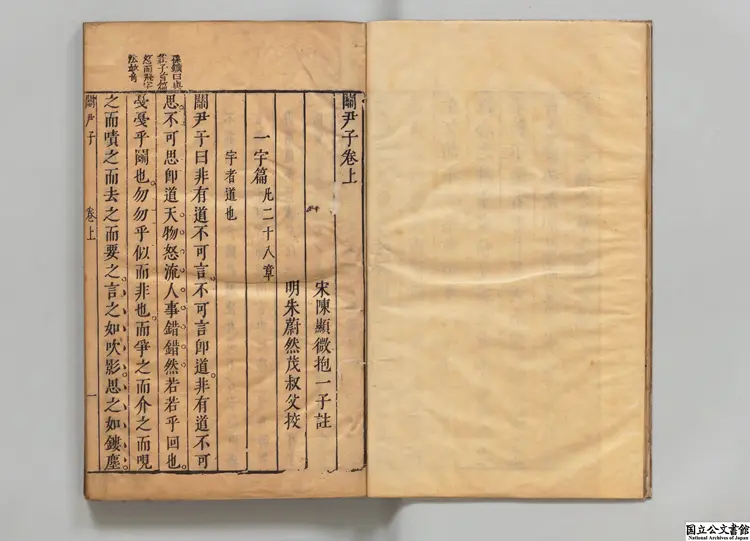 孫鑛曰與
莊子首篇
怒而飛字
關尹子卷上
宋陳顯微抱一子註
明朱蔚然茂叔父挍
一宇篇 凡二十八章
宇者道也
關尹子曰非有道不可言。不可言卽道。非有道不可
思。不可思卽道。天物怒流。人事錯錯然。若若乎回也。
戞戞乎鬬也。勿勿乎似而非也。而爭之而介之而哯
之而嘖之而去之而要之。言之如吹影。思之如鏤塵。
關尹子 卷上 一
国立公文書館
National Archives of Japan